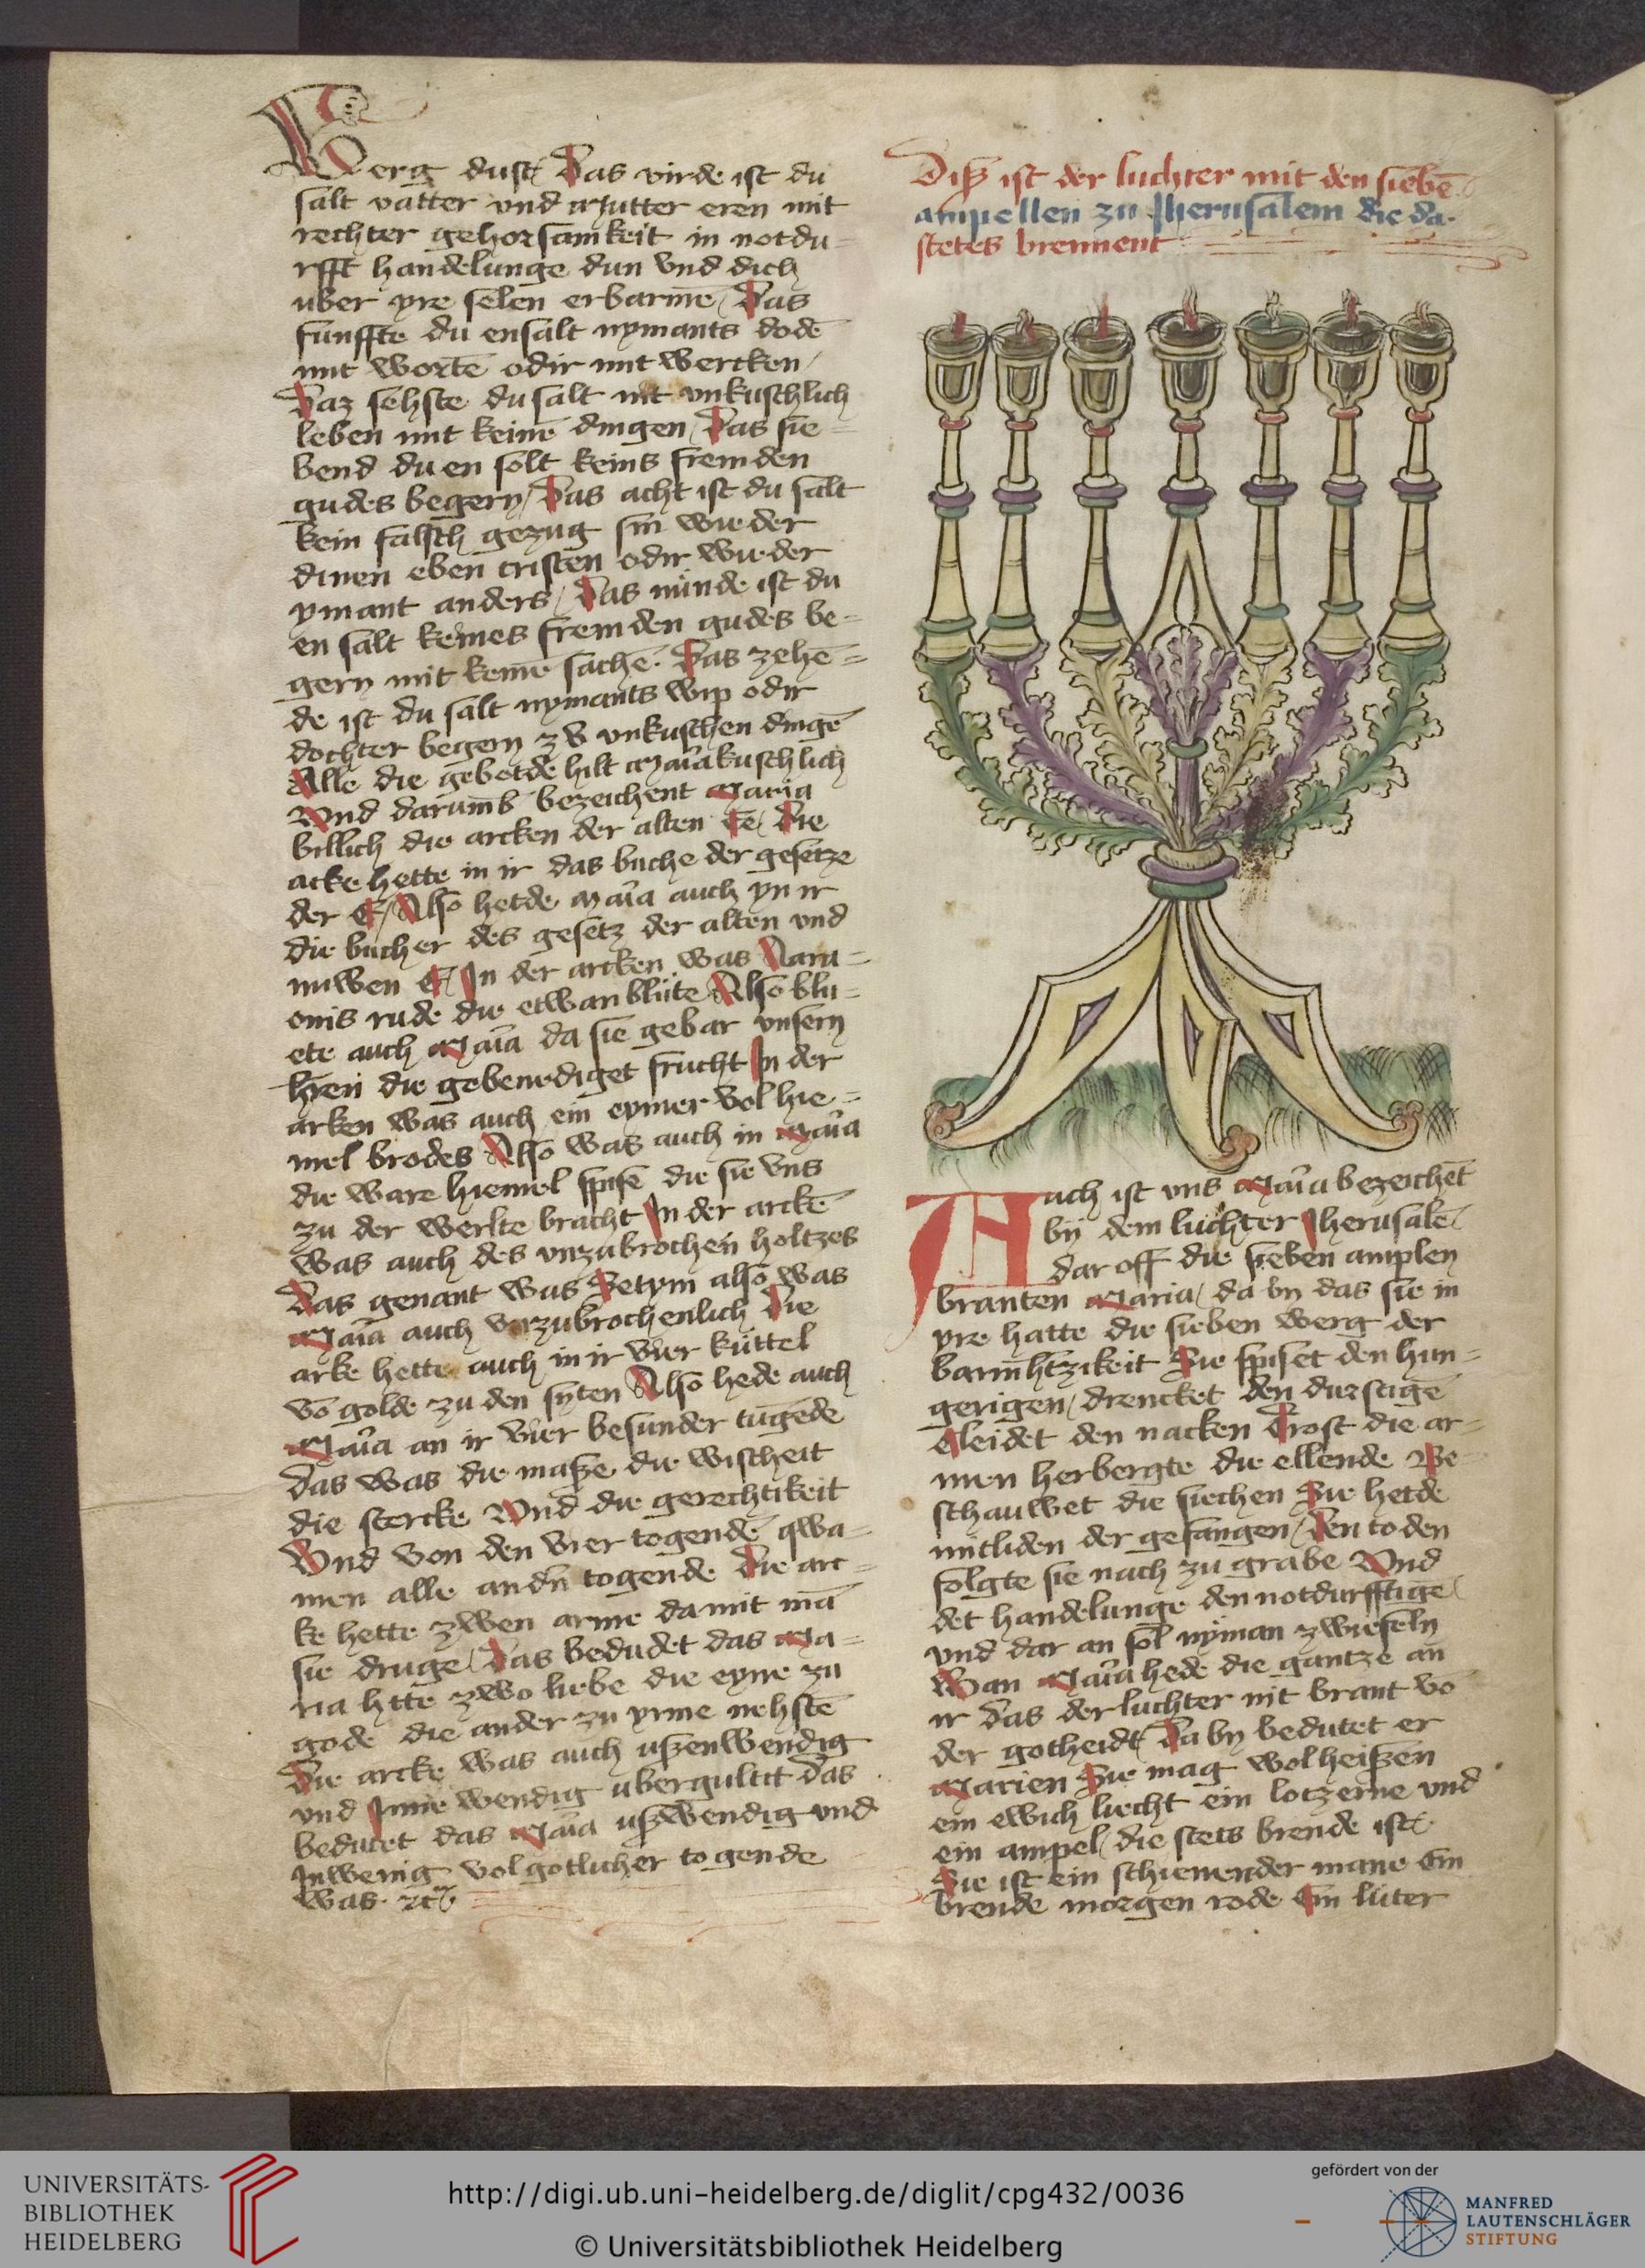 Werg dust Das virde ist du
salt vatter vnd Mutter eren mit
rechter gehorsamkeit in notdu-
rfft handelunge dun vnd dich
uber yre selen erbarmē Das
funffte du ensalt nymants dodē
mit wortē odir mit wercken
Daz sehste du salt nit vnkuschlich
leben mit keinē dingen Das sie-
bend du en solt keins fremden
gudes begern Das acht ist du salt
kein falsch gezug sin wieder
dinen eben cristen odir wieder
ymant anders Das nunde ist du
en salt keines fremden gudes be-
gern mit keinē sachē Das zehē-
de ist du salt nymants wip odir
dochter begern zu vnkuschen dingē
Alle die gebotde hilt Maria kuschlich
Vnd darumb bezeichent Maria
billich die arcken der alten Ee Die
arke hette in ir das buche der gesetze
der E Also hetde Maria auch yn ir
die bucher des gesetz der alten vnd
nuwen E In der arcken was Aaru-
onis rude die etwan blute Also blu-
ete auch Maria da sie gebar vnsern
hren die gebenediget frucht In der
arken was auch ein eymer vol hie-
mel brodes Also was auch in Maria
die ware hiemel spise die sie vns
zu der werlte bracht In der arckē
was auch des vnzubrochen holtzes
Das genant was Setym also was
Maria auch vnzubrochenlich Die
arke hette auch in ir vier kuttel
vō golde zu den syten Also hede auch
Maria an ir vier besunder tugēde
das was die maße die wischeit
die stercke Vnd die gerechtikeit
Vnd von den vier togendē qwa-
men alle andn togende Die arc-
ke hette zwen arme da mit mā
sie druge Das bedudet das Ma-
ria htte zwo liebe die eyne zu
gode die ander zu yrme nehstē
Die arcke was auch ußenwendig
vnd Inne wendig ubergultit das
bedutet das Maria ußwendig vnd
Inwenig vol gotlicher togende
was etc
Diß ist der luchter mit den siebē
ampellen zu Jherusalem die da
stetes brennent
Auch ist vns Maria bezeichēt
by dem luchter Jherusalē
dar off die sieben amplen
branten Maria da by das sie in
yre hatte die sieben werg der
barmhtzikeit Sie spiset den hun-
gerigen drencket den durstigē
cleidet den nacken Trost die ar-
men herbergte die ellende Be-
schauwet die siechen Sie hetde
mitliden der gefangen Den toden
folgte sie nach zu grabe Vnd
det handelunge den notdurfftigē
vnd dar an sol nyman zwiefeln
Wan Maria hede die gantze an
ir das der luchter nit brant vō
der gotheidt Da by bedutet er
Marien Sie mag wol heißen
ein ewich liecht ein lotzerne vnd
ein ampel die stets brende ist
Sie ist ein schienender mane Ein
brende morgen rode Ein luter
UNIVERSITÄTS-
BIBLIOTHEK
HEIDELBERG
http://digi.ub.uni-heidelberg.de/diglit/cpg432/0036
© Universitätsbibliothek Heidelberg
gefördert von der
MANFRED
LAUTENSCHLÄGER
STIFTUNG